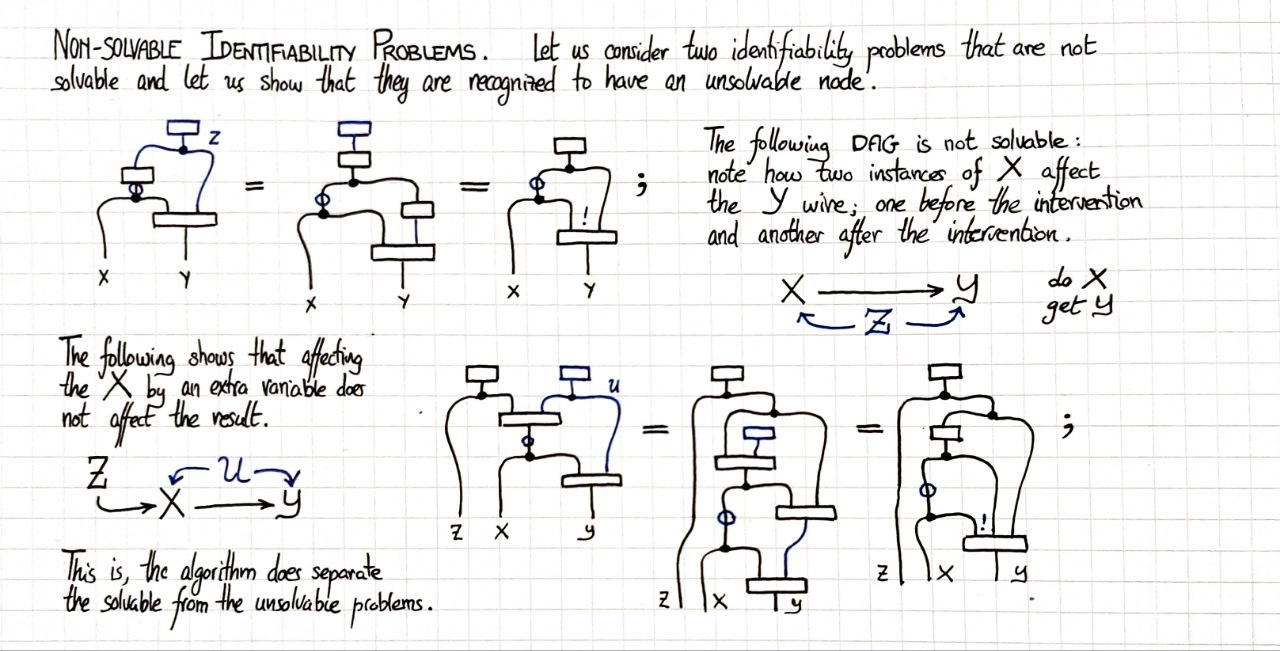 NON-SOLVABLE IDENTIFIABILITY PROBLEMS. Let us consider two identifiability problems that are not
solvable and let us show that they are recognized to have an unsolvable node.
Z
=
=
;
!
X
Y
X
Y
X
Y
The following DAG is not solvable:
note how two instances of X affect
the Y wire; one before the intervention
and another after the intervention.
X Y
Z
do X
get Y
The following shows that affecting
the X by an extra variable does
not affect the result.
Z U
X Y
This is, the algorithm does separate
the solvable from the unsolvable problems.
u
=
=
;
!
Z X Y
Z X Y
Z X Y